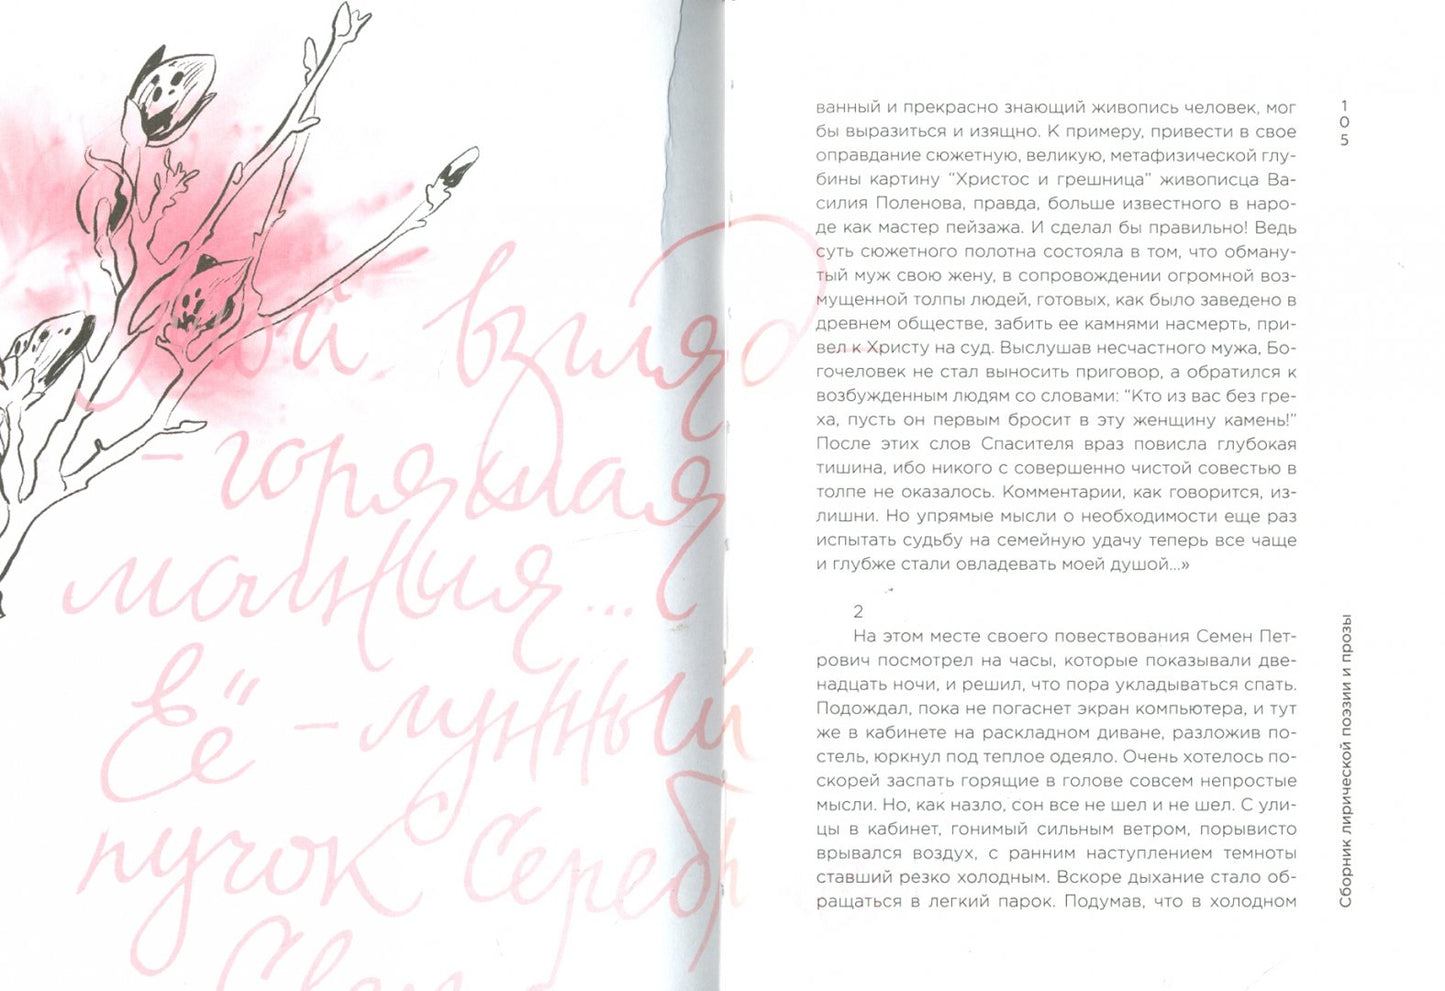 Мой взгляд
– горящая
молния...
Её – лунный
пучок серебр
ванный и прекрасно знающий живопись человек, мог
бы выразиться и изящно. К примеру, привести в свое
оправдание сюжетную, великую, метафизической глу-
бины картину "Христос и грешница" живописца Ва-
силия Поленова, правда, больше известного в наро-
де как мастер пейзажа. И сделал бы правильно! Ведь
суть сюжетного полотна состояла в том, что обману-
тый муж свою жену, в сопровождении огромной воз-
мущенной толпы людей, готовых, как было заведено в
древнем обществе, забить ее камнями насмерть, при-
вел к Христу на суд. Выслушав несчастного мужа, Бо-
гочеловек не стал выносить приговор, а обратился к
возбужденным людям со словами: "Кто из вас без гре-
ха, пусть он первым бросит в эту женщину камень!"
После этих слов Спасителя враз повисла глубокая
тишина, ибо никого с совершенно чистой совестью в
толпе не оказалось. Комментарии, как говорится, из-
лишни. Но упрямые мысли о необходимости еще раз
испытать судьбу на семейную удачу теперь все чаще
и глубже стали овладевать моей душой...»
2
На этом месте своего повествования Семен Пет-
рович посмотрел на часы, которые показывали две-
надцать ночи, и решил, что пора укладываться спать.
Подождал, пока не погаснет экран компьютера, и тут
же в кабинете на раскладном диване, разложив по-
стель, юркнул под теплое одеяло. Очень хотелось по-
скорей заспать горящие в голове совсем непростые
мысли. Но, как назло, сон все не шел и не шел. С ули-
цы в кабинет, гонимый сильным ветром, порывисто
врывался воздух, с ранним наступлением темноты
ставший резко холодным. Вскоре дыхание стало об-
ращаться в легкий парок. Подумав, что в холодном
105
Сборник лирической поэзии и прозы